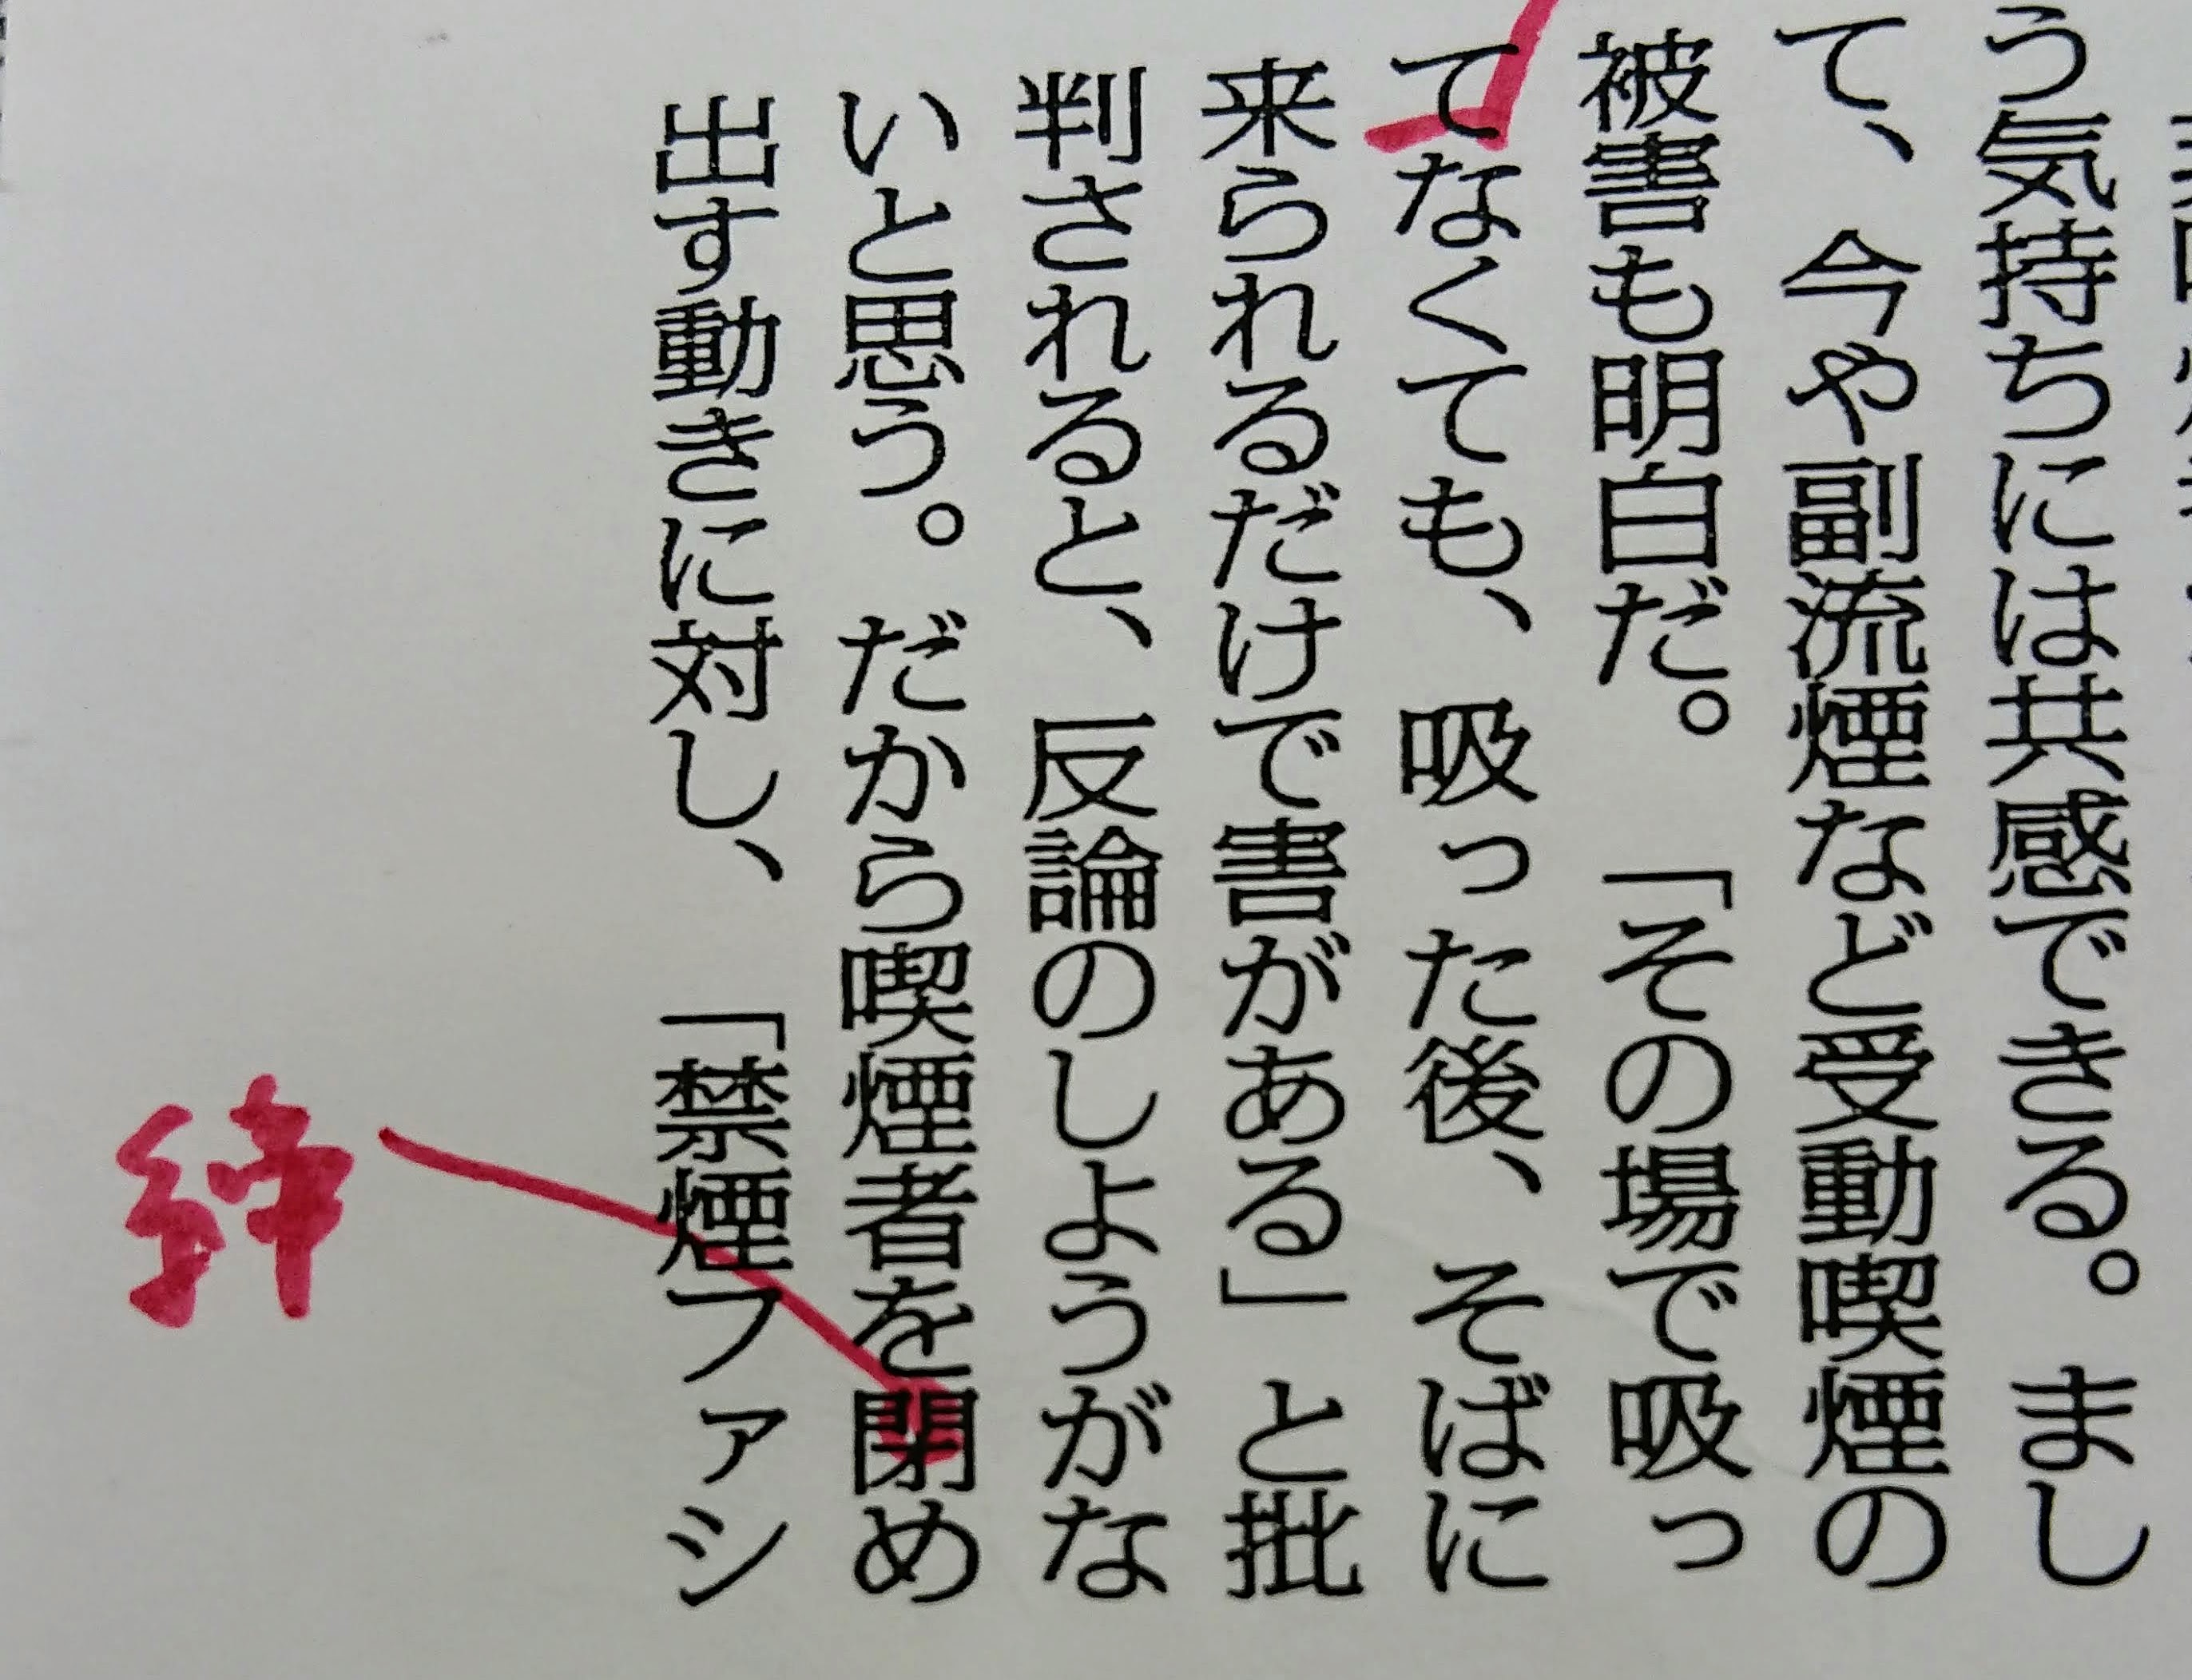 う気持ちには共感できる。まし
て、今や副流煙など受動喫煙の
被害も明白だ。「その場で吸っ
てなくても、吸った後、そばに
来られるだけで害がある」と批
判されると、反論のしようがな
いと思う。だから喫煙者を閉め
出す動きに対し、「禁煙ファシ
締